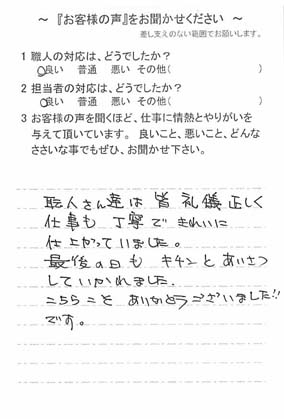 ～ 『お客様の声』をお聞かせください ～
差し支えのない範囲でお願いします。
1 職人の対応は、どうでしたか？
良い 普通 悪い その他( )
2 担当者の対応は、どうでしたか？
良い 普通 悪い その他( )
3 お客様の声を聞くほど、仕事に情熱とやりがいを
与えて頂いています。 良いこと、悪いこと、どんな
ささいな事でもぜひ、お聞かせ下さい。
職人さん達は 皆 礼儀正しく
仕事も 丁寧で きれいに
仕上がっていました。
最後の日も キチンと あいさつ
していかれました.
こちらこそ ありがとうございました!!
です。